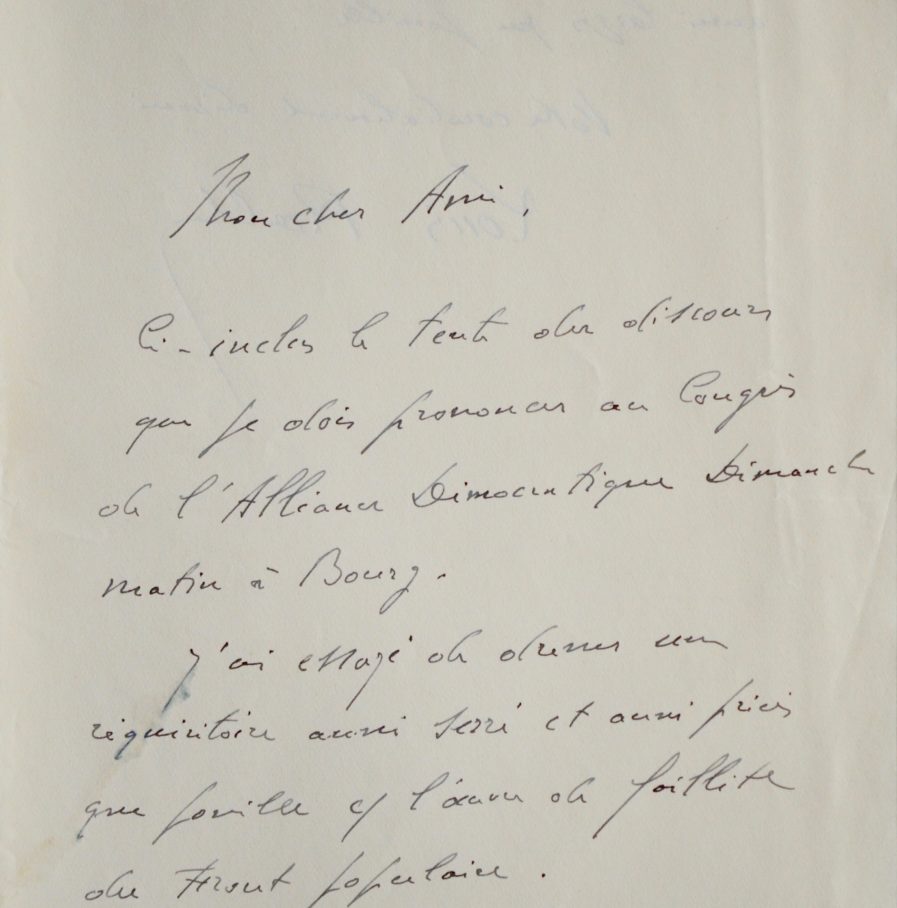 Mon cher Ami,
Ci-inclus le texte du discours
que je dois prononcer au Congrès
de l'Alliance Démocratique Dimanche
matin à Bourg.
J'ai essayé de dresser un
réquisitoire aussi serré et aussi précis
que possible de l'œuvre de faillite
du Front populaire.